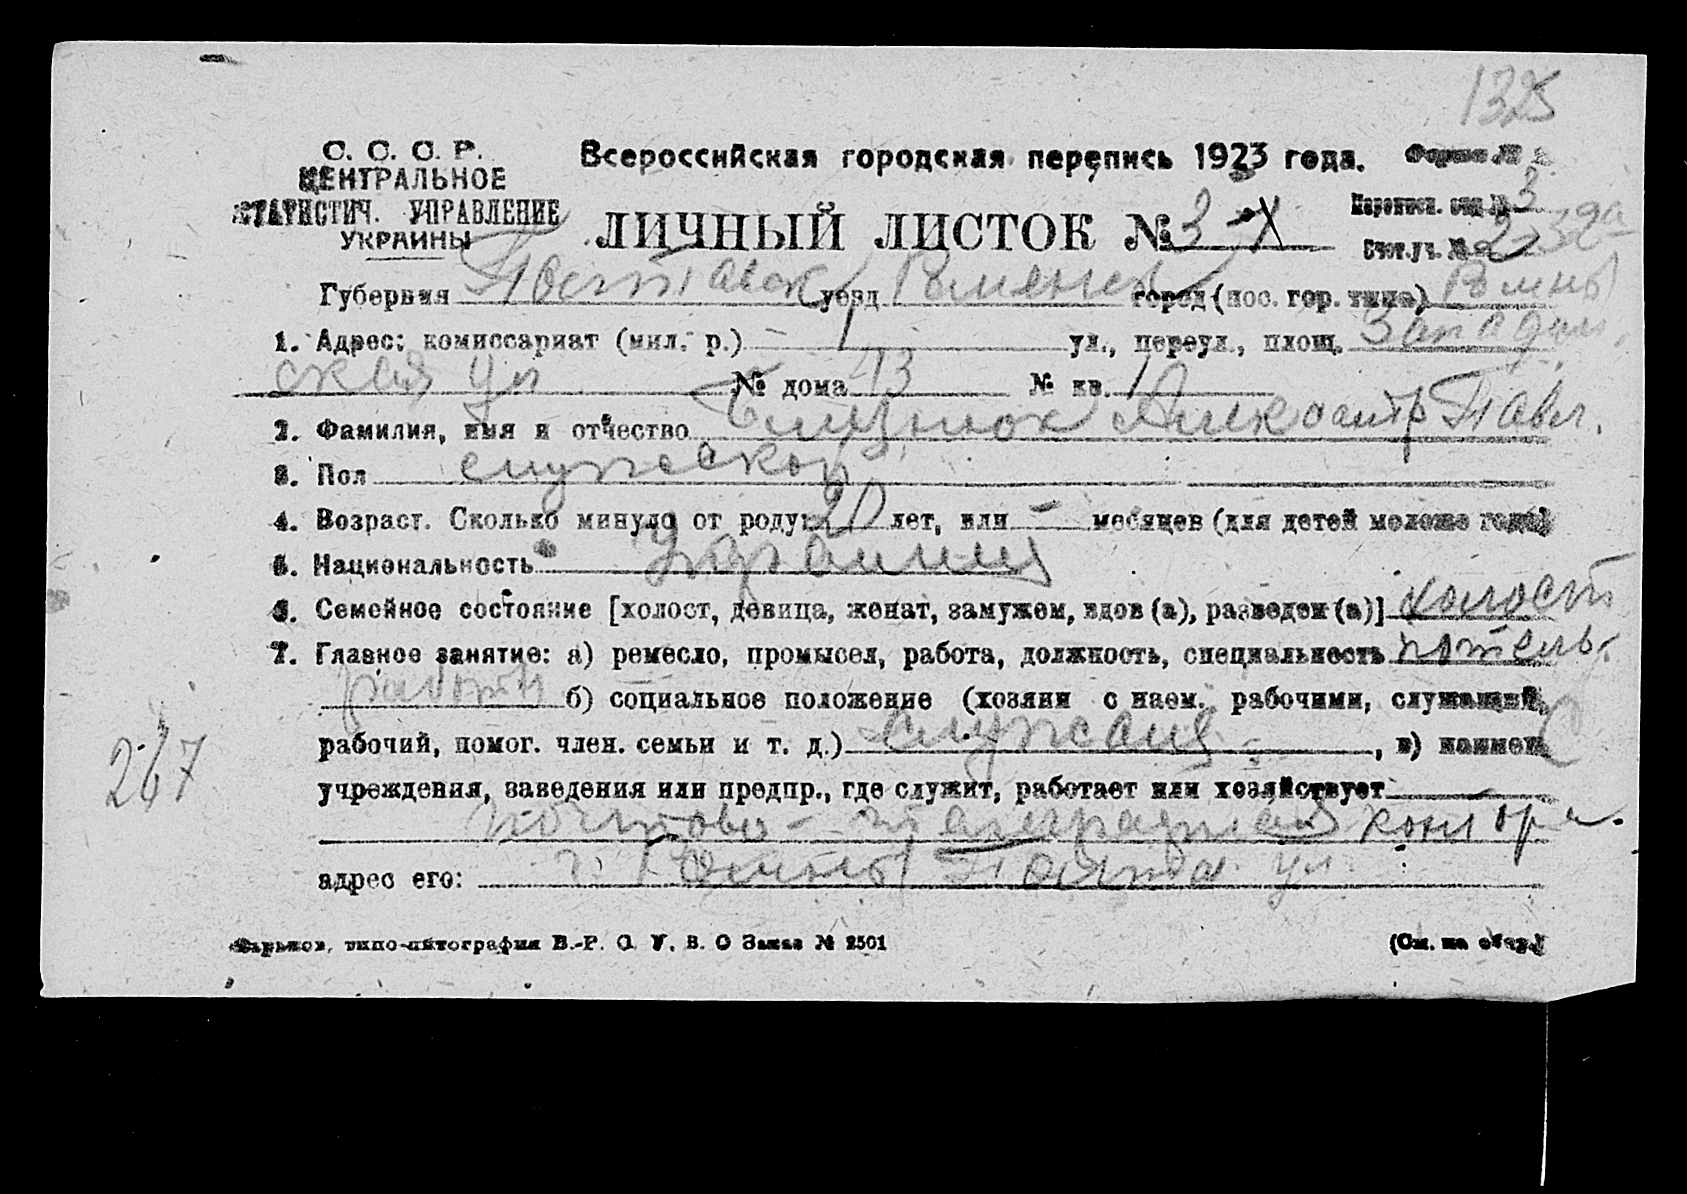 1325
С. С. С. Р.
ЦЕНТРАЛЬНОЕ
СТАТИСТИЧ. УПРАВЛЕНИЕ
УКРАИНЫ
Всероссийская городская перепись 1923 года.
Форма №
ЛИЧНЫЙ ЛИСТОК № 3-
Переписн. отд. № 3
Счет.уч. №
Губерния Полтавск уезд Роменск город (пос. гор. типа) Ромны
1. Адрес: комиссариат (мил. р.) 1 ул., переул., площ.
ская ул № дома 43 № кв. 1
2. Фамилия, имя и отчество Александр Павл.
3. Пол мужской
4. Возраст. Сколько минуло от роду: 20 лет, или - месяцев (для детей моложе года)
5. Национальность Украинец
6. Семейное состояние [холост, девица, женат, замужем, вдов (а), разведен (а)] холост
7. Главное занятие: а) ремесло, промысел, работа, должность, специальность
б) социальное положение (хозяин с наем. рабочими, служащий,
рабочий, помог. член. семьи и т. д.) служащ , в) наимен
267
учреждения, заведения или предпр., где служит, работает или хозяйствует
почтово-телеграфная контора.
адрес его: г. Ромны ул.
Харьков, типо-литография В.-Р. О. У. В. О Заказ № 2501
(См. на обор.)